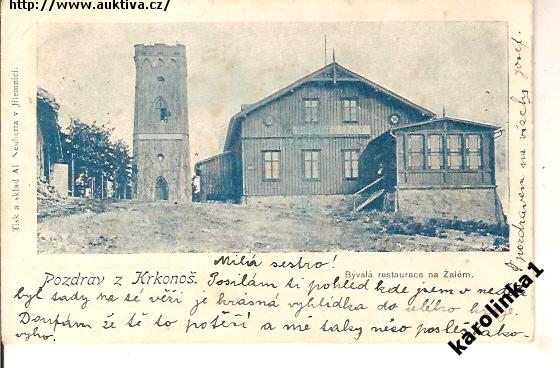 http://www.auktiva.cz/
Tisk a sklad Al. Neuherta v Jilemnici.
Pozdrav z Krkonoš.
Bývalá restaurace na Žalém.
Milá sestro!
Posílám ti pohled kde jsem v neděli
byl tady na té věži je krásná vyhlídka do celého kraje
Doufám že tě to potěší a mě taky něco pošleš tako-
vyho.
Pozdravem na všechy Josef.
karolinka1